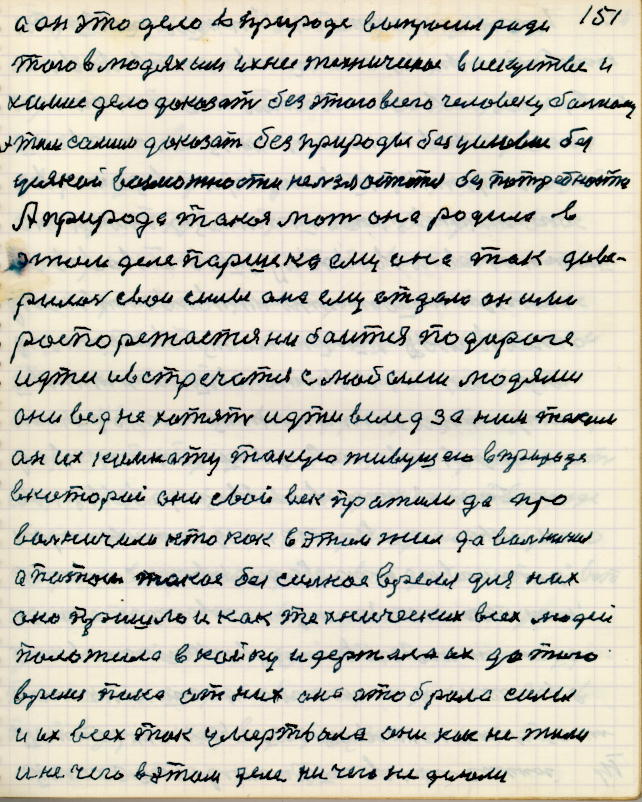 а он это дело в природе выпросил ради 151
того в людях им ихнее техничиное в искустве и
химие дело доказат без этого всего человеку болному
этим самим доказат без природы без условие без
усякой возможности без потребности
А природа такая мат она родила в
этом деле паршека ему она так дове-
рилас свои силы она ему отдала он ими
роспорежается ни боится по дороге
идти и встречатся с любыми людями
они вед не хотят идти вслед за ним таким
ан их комнату такую живущею в природе
в которой они свой век пражили да про
волничали кто как в этом жил да волничил
а патом такое бес силное время для них
оно пришло и как технических всех людей
положила в койку и держала их до того
время пака от них она отобрала силы
и их всех так умертвала они как не жили
и не чего в этом деле ни чего не делали